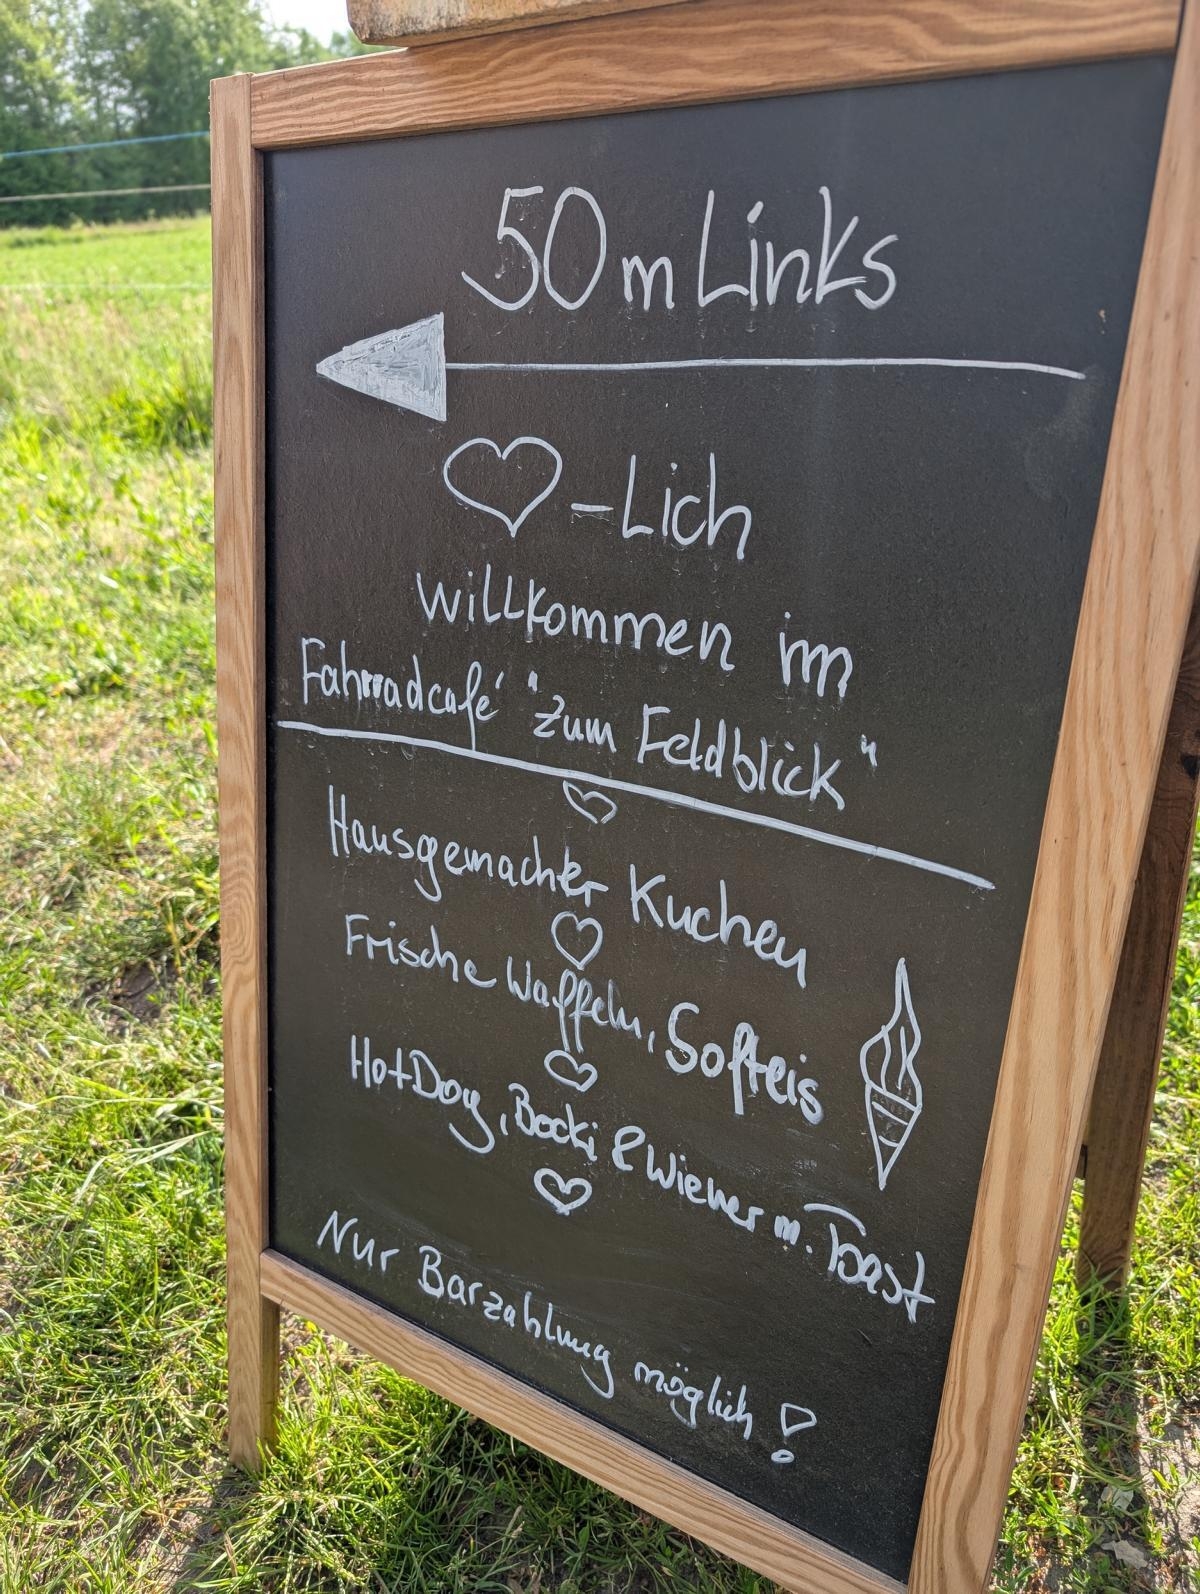 50 m Links
-Lich
Willkommen im
Fahrradcafé "zum Feldblick"
Hausgemachter Kuchen
Frische Waffeln, Softeis
HotDog, Bocki & Wiener m. Toast
Nur Barzahlung möglich !